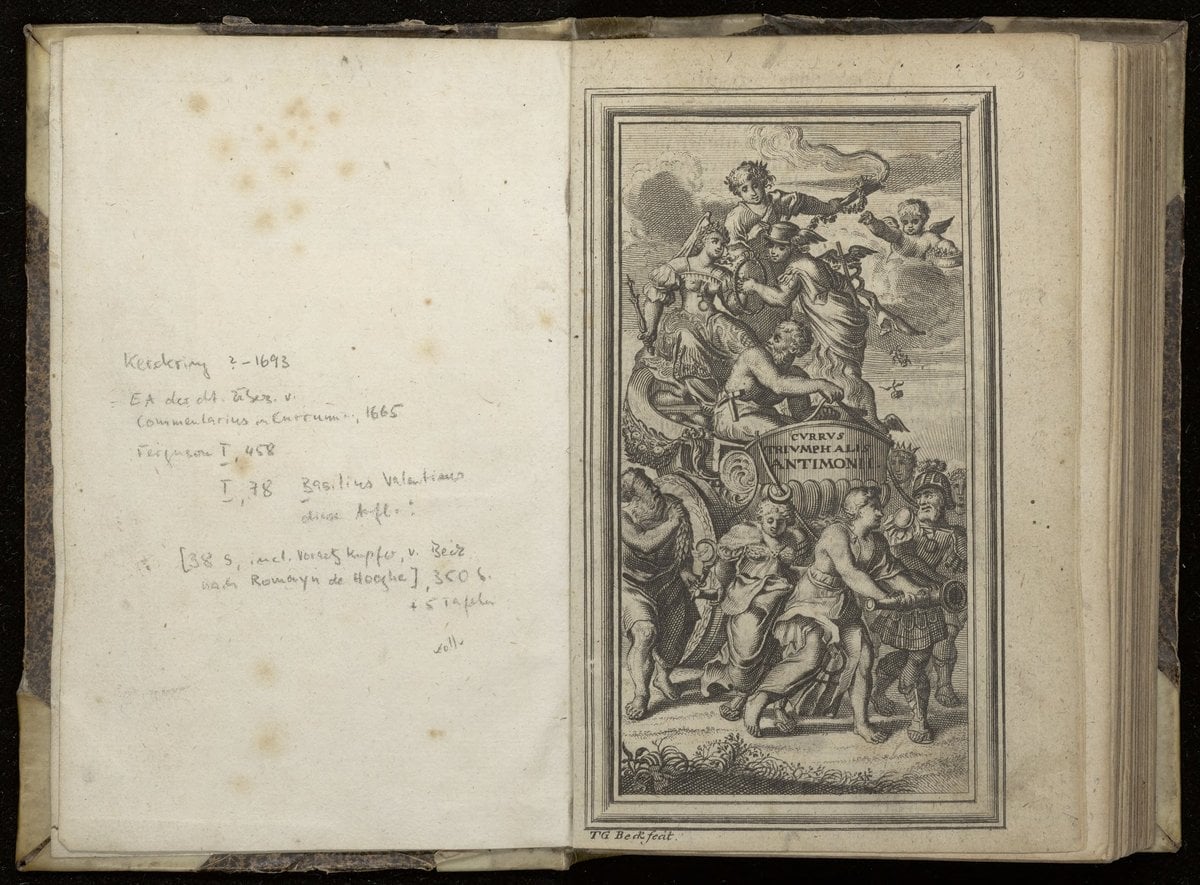 Kerckring ? – 1693
EA der dt. Übers. v.
Commentarius in Currum.., 1665
Ferguson I, 458
I, 78 Basilius Valentinus
diese Aufl.
[38 S, incl. Vorsatzkupfer, v. Beck
nach Romayn de Hooghe], 350 S.
+ 5 Tafeln
koll.
CVRRVS
TRIVMPHALIS
ANTIMONII.
TG Beck fecit.